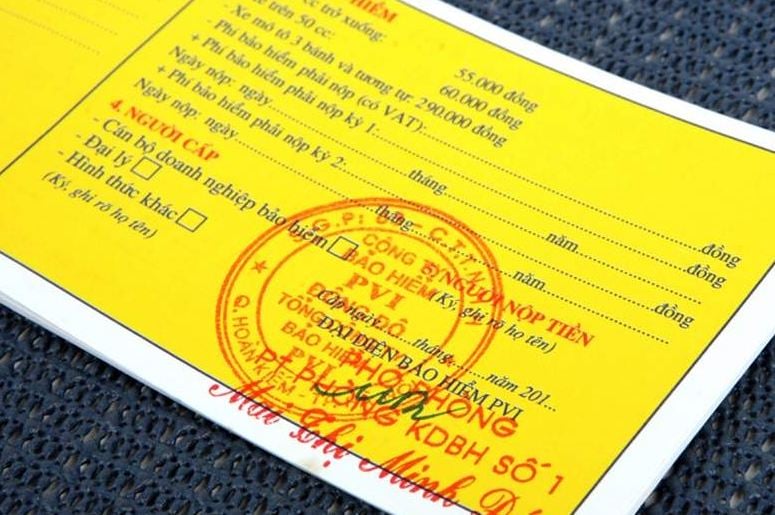 HIỂM
cc trở xuống:
trên 50 cc:
55.000 đồng
60.000 đồng
- Xe mô tô 3 bánh và tương tự: 290.000 đồng
- Phí bảo hiểm phải nộp (có VAT):......đồng
+ Phí bảo hiểm phải nộp kỳ 1:......đồng
Ngày nộp: ngày......tháng......năm......
+ Phí bảo hiểm phải nộp kỳ 2:......đồng
Ngày nộp: ngày......tháng......năm......
4. NGƯỜI CẤP
- Cán bộ doanh nghiệp bảo hiểm □
- Đại lý □
- Hình thức khác □
(Ký, ghi rõ họ tên)
NGƯỜI NỘP TIỀN
(Ký, ghi rõ họ tên)
Cấp, ngày......tháng......năm 201...
ĐẠI DIỆN BẢO HIỂM PVI
CÔNG TY
BẢO HIỂM
PVI
ĐÔNG ĐÔ
TỔNG CÔNG
BẢO HIỂM
PVI
Q. HOÀN KIẾM
PHÓ PHÒNG
PT PHÒNG KDBH SỐ 1
Mai Thị Minh